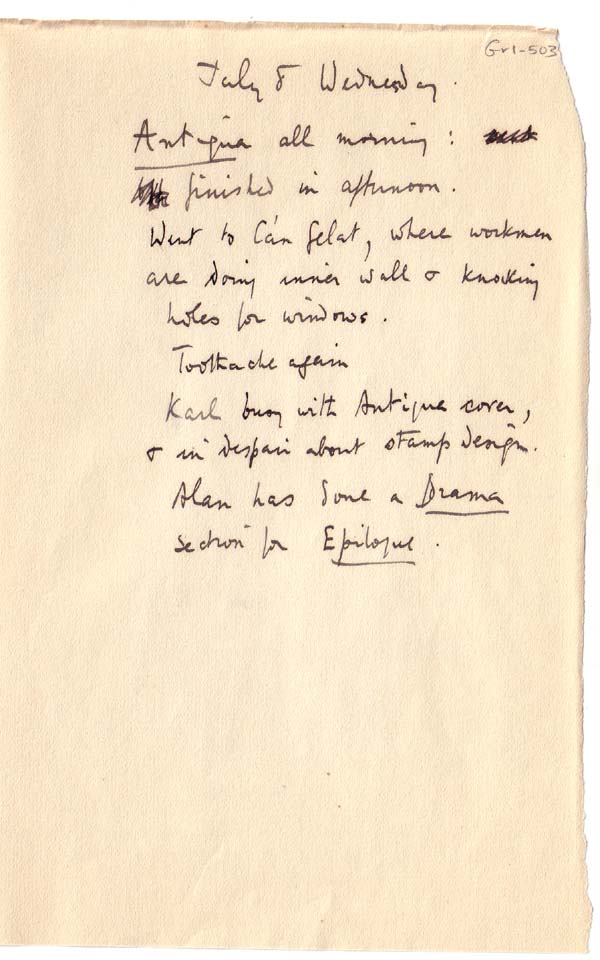 Gr1-503
July 8 Wednesday.
Antigua all morning:
finished in afternoon.
Went to Cán Gelat, where workmen
are doing inner wall & knocking
holes for windows.
Toothache again
Karl busy with Antigua cover,
& in despair about stamp design.
Alan has done a Drama
section for Epilogue.